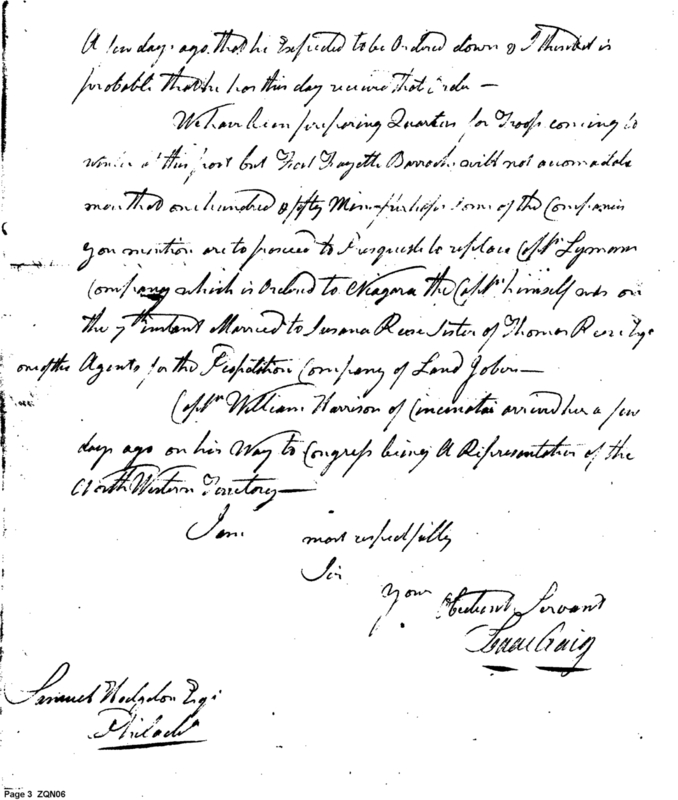 A few days ago that he Expected to be Ordered down & I think it is
probable that he has this day received that order —
We have been preparing Quarters for Troops coming to
winter at this post but Fort Fayette Barracks will not accomodate
more that one hundred & fifty Men perhaps some of the Companies
you mention are to proceed to Presquile to replace Capt. Lymans
Company which is Ordered to Niagara the Capt. himself was on
the 7th instant Married to Susana Rees Sister of Thomas Rees Esqr
one of the Agents for the Population Company of Land Jobers —
Capt. William Harrison of Cincinatia arrived here a few
days ago on his Way to Congress being A Representative of the
North Western Territory —
I am most respectfully
Sir
your Obedient Servant
Isaac Craig
Samuel Hodgdon Esqr
Philada
Page 3 ZQN06